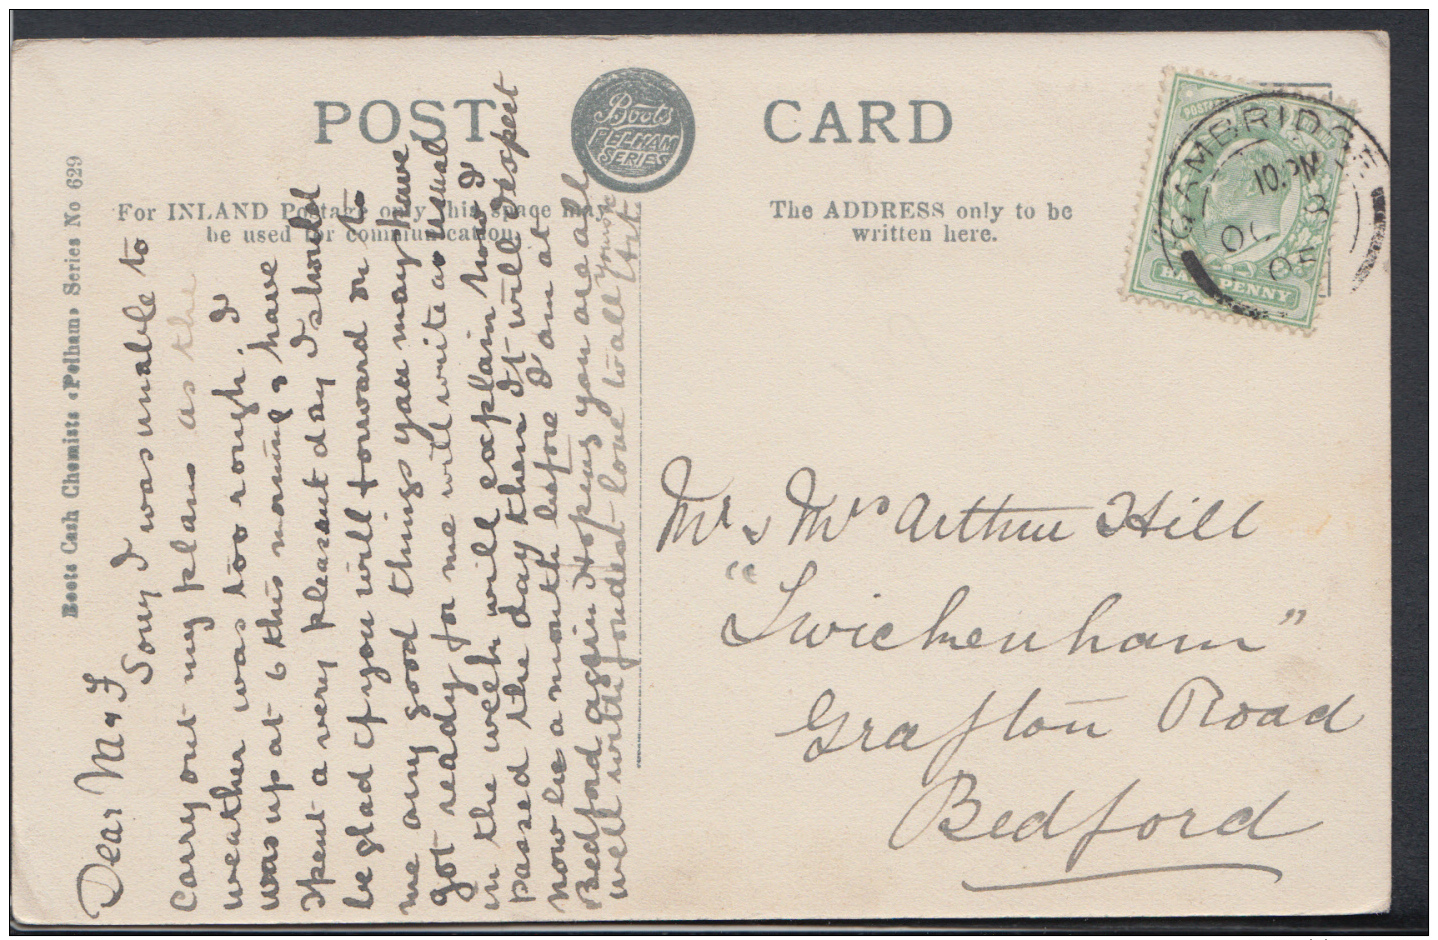 POST CARD
Boots
PELHAM
SERIES
For INLAND Postage only this space may
be used for communication.
The ADDRESS only to be
written here.
Boots Cash Chemists "Pelham" Series No 629
CAMBRIDGE
10.PM
OC
05
HALFPENNY
Dear M & F
Sorry I was unable to
carry out my plans as the
weather was too rough. I
was up at 6 this morning & have
spent a very pleasant day I should
be glad if you will forward on to
me any good things you may have
got ready for me will write as usual
in the week will explain how I
passed the day then It will be
now be a month before I am at
Bedford again Hoping you are all
well with fondest love to all Yours
Art.
Mr & Mrs Arthur Hill
"Twickenham"
Grafton Road
Bedford